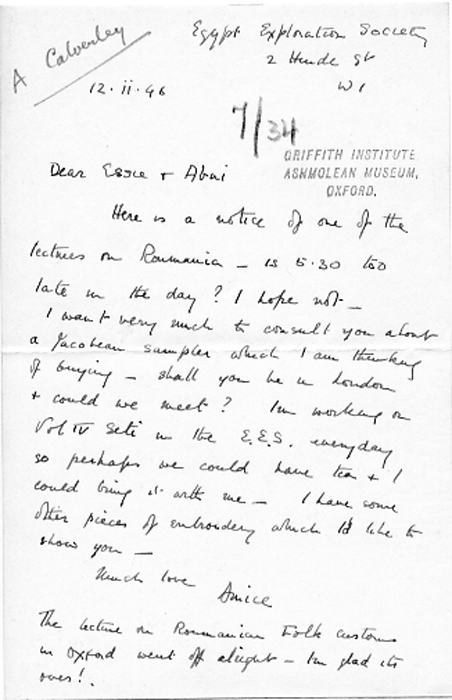 A Calverley
Egypt Exploration Society
2 Hinde St
W1
12.ii.46
7/34
GRIFFITH INSTITUTE
ASHMOLEAN MUSEUM,
OXFORD.
Dear Essie + Abai
Here is a notice of one of the
lectures on Roumania – is 5.30 too
late in the day? I hope not –
I want very much to consult you about
a Jacobean sampler which I am thinking
of buying – shall you be in London
+ could we meet? Im working on
Vol IV Seti in the E.E.S. everyday
so perhaps we could have tea + I
could bring it with me – I have some
other pieces of embroidery which I'd like to
show you –
Much love
Amice
The lecture on Roumanian Folk customs
in Oxford went off alright – Im glad its
over!.